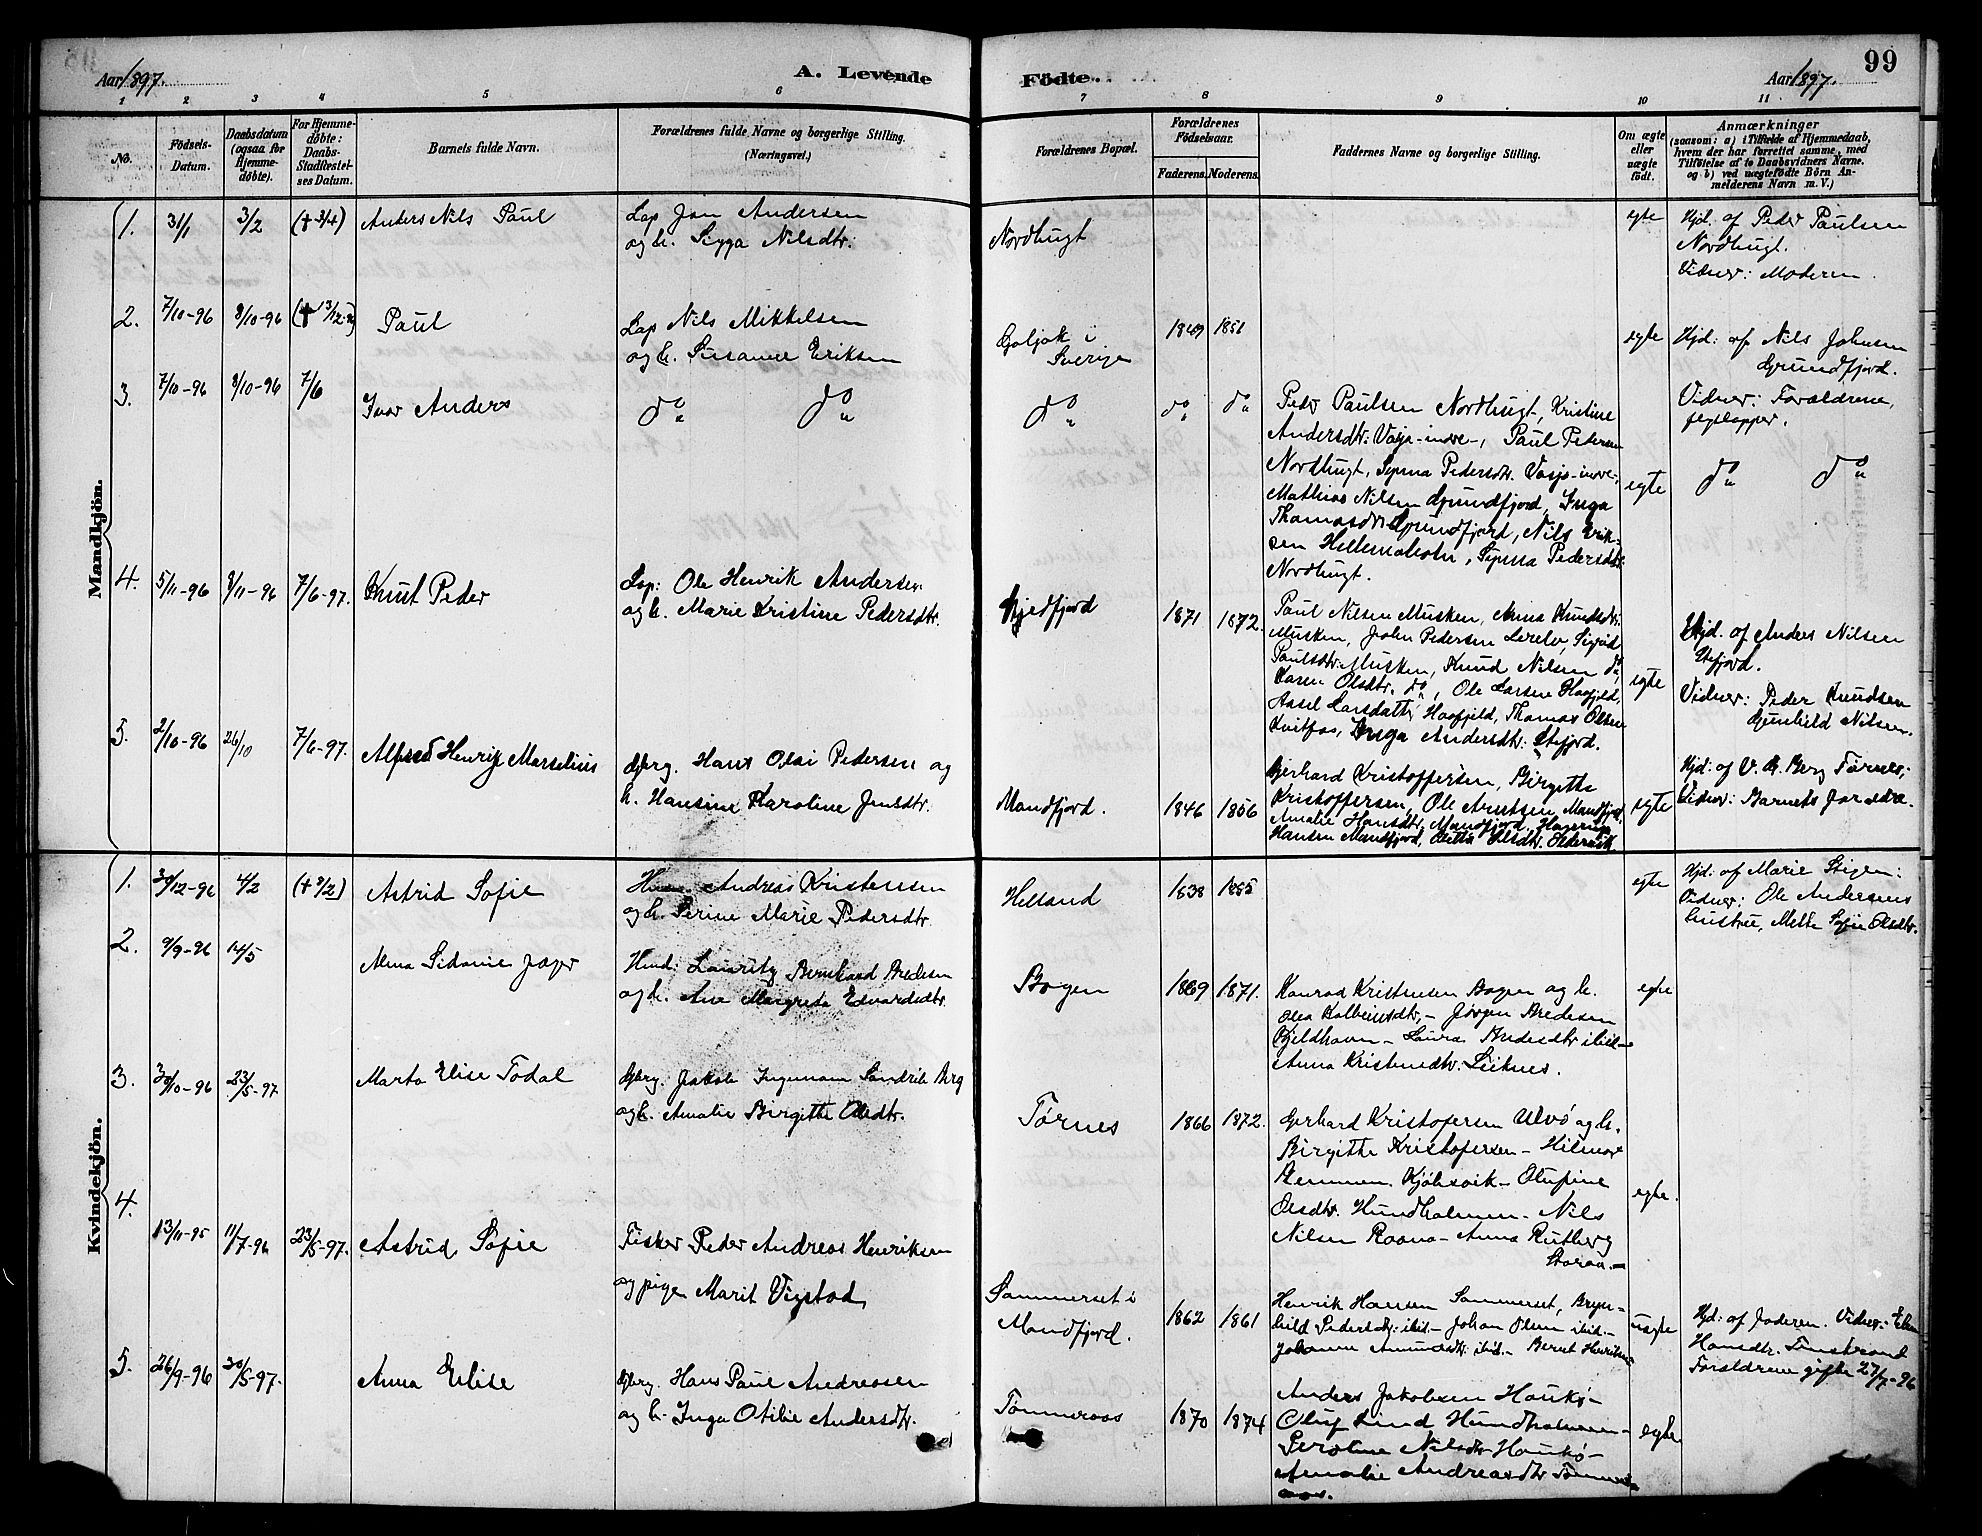 Aar 1897.
A. Levende
Födte.
Aar 1897.
99
1 2 3 4 5 6 7 8 9 10 11
No.
Födsels-
Datum.
Daabsdatum
(ogsaa for
Hjemme-
döbte).
For Hjemme-
döbte:
Daabs-
Stadfæstel-
ses Datum.
Barnets fulde Navn.
Forældrenes fulde Navne og borgerlige Stilling.
(Næringsvei.)
Forældrenes Bopæl.
Forældrenes
Födselsaar.
Faderens. Moderens.
Faddernes Navne og borgerlige Stilling.
Om ægte
eller
uægte
födt.
Anmærkninger
(saasom: a) i Tilfælde af Hjemmedaab,
hvem der har forrettet samme, med
Tilföielse af to Daabsvidners Navne.
og b) ved uægtefödte Börn An-
melderens Navn m. V.)
Mandkjön.
1. 31/1 3/2 (+ 3/4) Anders Nils Paul
Lap Jon Andersen
og h. Sigga Nilsdtr.
Nordbugt
egte
Hjd. af Peder Paulsen
Nordbugt.
Vidner: Moderen.
2. 7/10-96 8/10-96 Paul
Lap Nils Mikkelsen
og h. Susanne Eriksen
i
Sverige
1849 1851
egte
Hjd: af Nils Johnsen
Grundfjord.
Vidner: Forældrene,
3. 7/10-96 8/10-96 7/6 Ivar Anders
do do
do
do do
Peder Paulsen Nordbugt, Kristine
Andersdtr: Vasja-indre-, Paul Pedersen
Nordbugt, Pedersdtr. indre,
Mathias Nilsen Grundfjord, Inga
Thomasdtr Grundfjord, Nils Erik-
sen Hellemobotn, Pedersdtr.
Nordbugt.
egte
do do
4. 5/11-96 8/11-96 7/6-97. Knut Peder
Lap: Ole Henrik Andersen
og h. Marie Kristine Pedersdtr.
1871 1872.
Paul Nilsen Musken, Anna Knudsdtr:
Musken, John Pedersen Sigrid
Paulsdtr. Musken, Knud Nilsen do,
Karen Olsdtr. do, Ole Larsen
Larsdatter Thomas Olsen
Inga Andersdtr: Stefjord.
egte
Hjd. af Anders Nilsen
Stefjord.
Vidner: Peder Knudsen
Gunhild Nilsen.
5. 2/10-96 26/10 7/6-97. Alfred Henrik Marselius
Gbrg. Hans Olai Pedersen og
h. Hansine Karoline Jensdtr.
Mandfjord.
1846 1856
Gerhard Kristoffersen, Birgitte
Kristoffersen, Ole Arntsen Mandfjord,
Amalie Hansdtr. Mandfjord,
Hansen Mandfjord, Olsdtr.
egte
Hjd: af V. A. Berg Tørnes;
Vidner: Barnets Forældre.
Kvindekjön.
1. 30/12-96 4/2 Astrid Sofie
Andreas Kristensen
og h. Serine Marie Pedersdtr.
Helland
1838 1855
egte
Hjd: af Marie Stigen:
Vidner: Ole Andersens
hustru, Mette Sofie Olsdtr.
2. 9/9-96 14/5
Alma Sidanie Jæger
Hmd: Lauritz Bernhard Bredesen
og h. Ane Margrete Edvardsdtr.
Bogen
1869 1871.
Konrad Kristensen Bogen og h.
Olea Kolbeinsdtr, - Jørgen Bredesen
Kjeldhavn - Laura Andersdtr ibid -
Anna Kristensdtr. Leiknes.
egte
3. 30/10-96 23/5-97.
Marta Elise Todal
Gbrg. Jakob Ingvman Berg
og h. Amalie Birgitte Olsdtr.
Tørnes
1866 1872.
Gerhard Kristofersen Ulvø og h.
Birgitte Kristofersen - Hilmar
Kjøbsvik - Olufine
Olsdtr. Hundholmen - Nils
Nilsen - Anna Rutberg
Storaa. -
egte.
4. 13/11-95 11/7-96 23/5-97. Astrid Sofie
Fisker Peder Andreas Henriksen
og pige Marit Vigstad
Sommerset i
Mandfjord.
1862 1861
Henrik Hansen Sommerset, Bryn-
hild Pedersdtr: ibid - Johan Olsen ibid. -
Johanne Amundsdtr: ibid. - Bernt Henriksen
uægte
Hjd: af Faderen. Vidner:
Hansdtr.
Forældrene gifte 27/7-96
5. 26/9-96 30/5-97.
Anna Elise
Gbrg. Hans Paul Andreasen
og h. Inga Otilie Andersdtr.
Tømmeraas
1870 1874
Anders Jakobsen Haukø-
Oluf Lind Hundholmen-
Peroline Nilsdtr Haukø-
Amalie Andreasdtr
egte